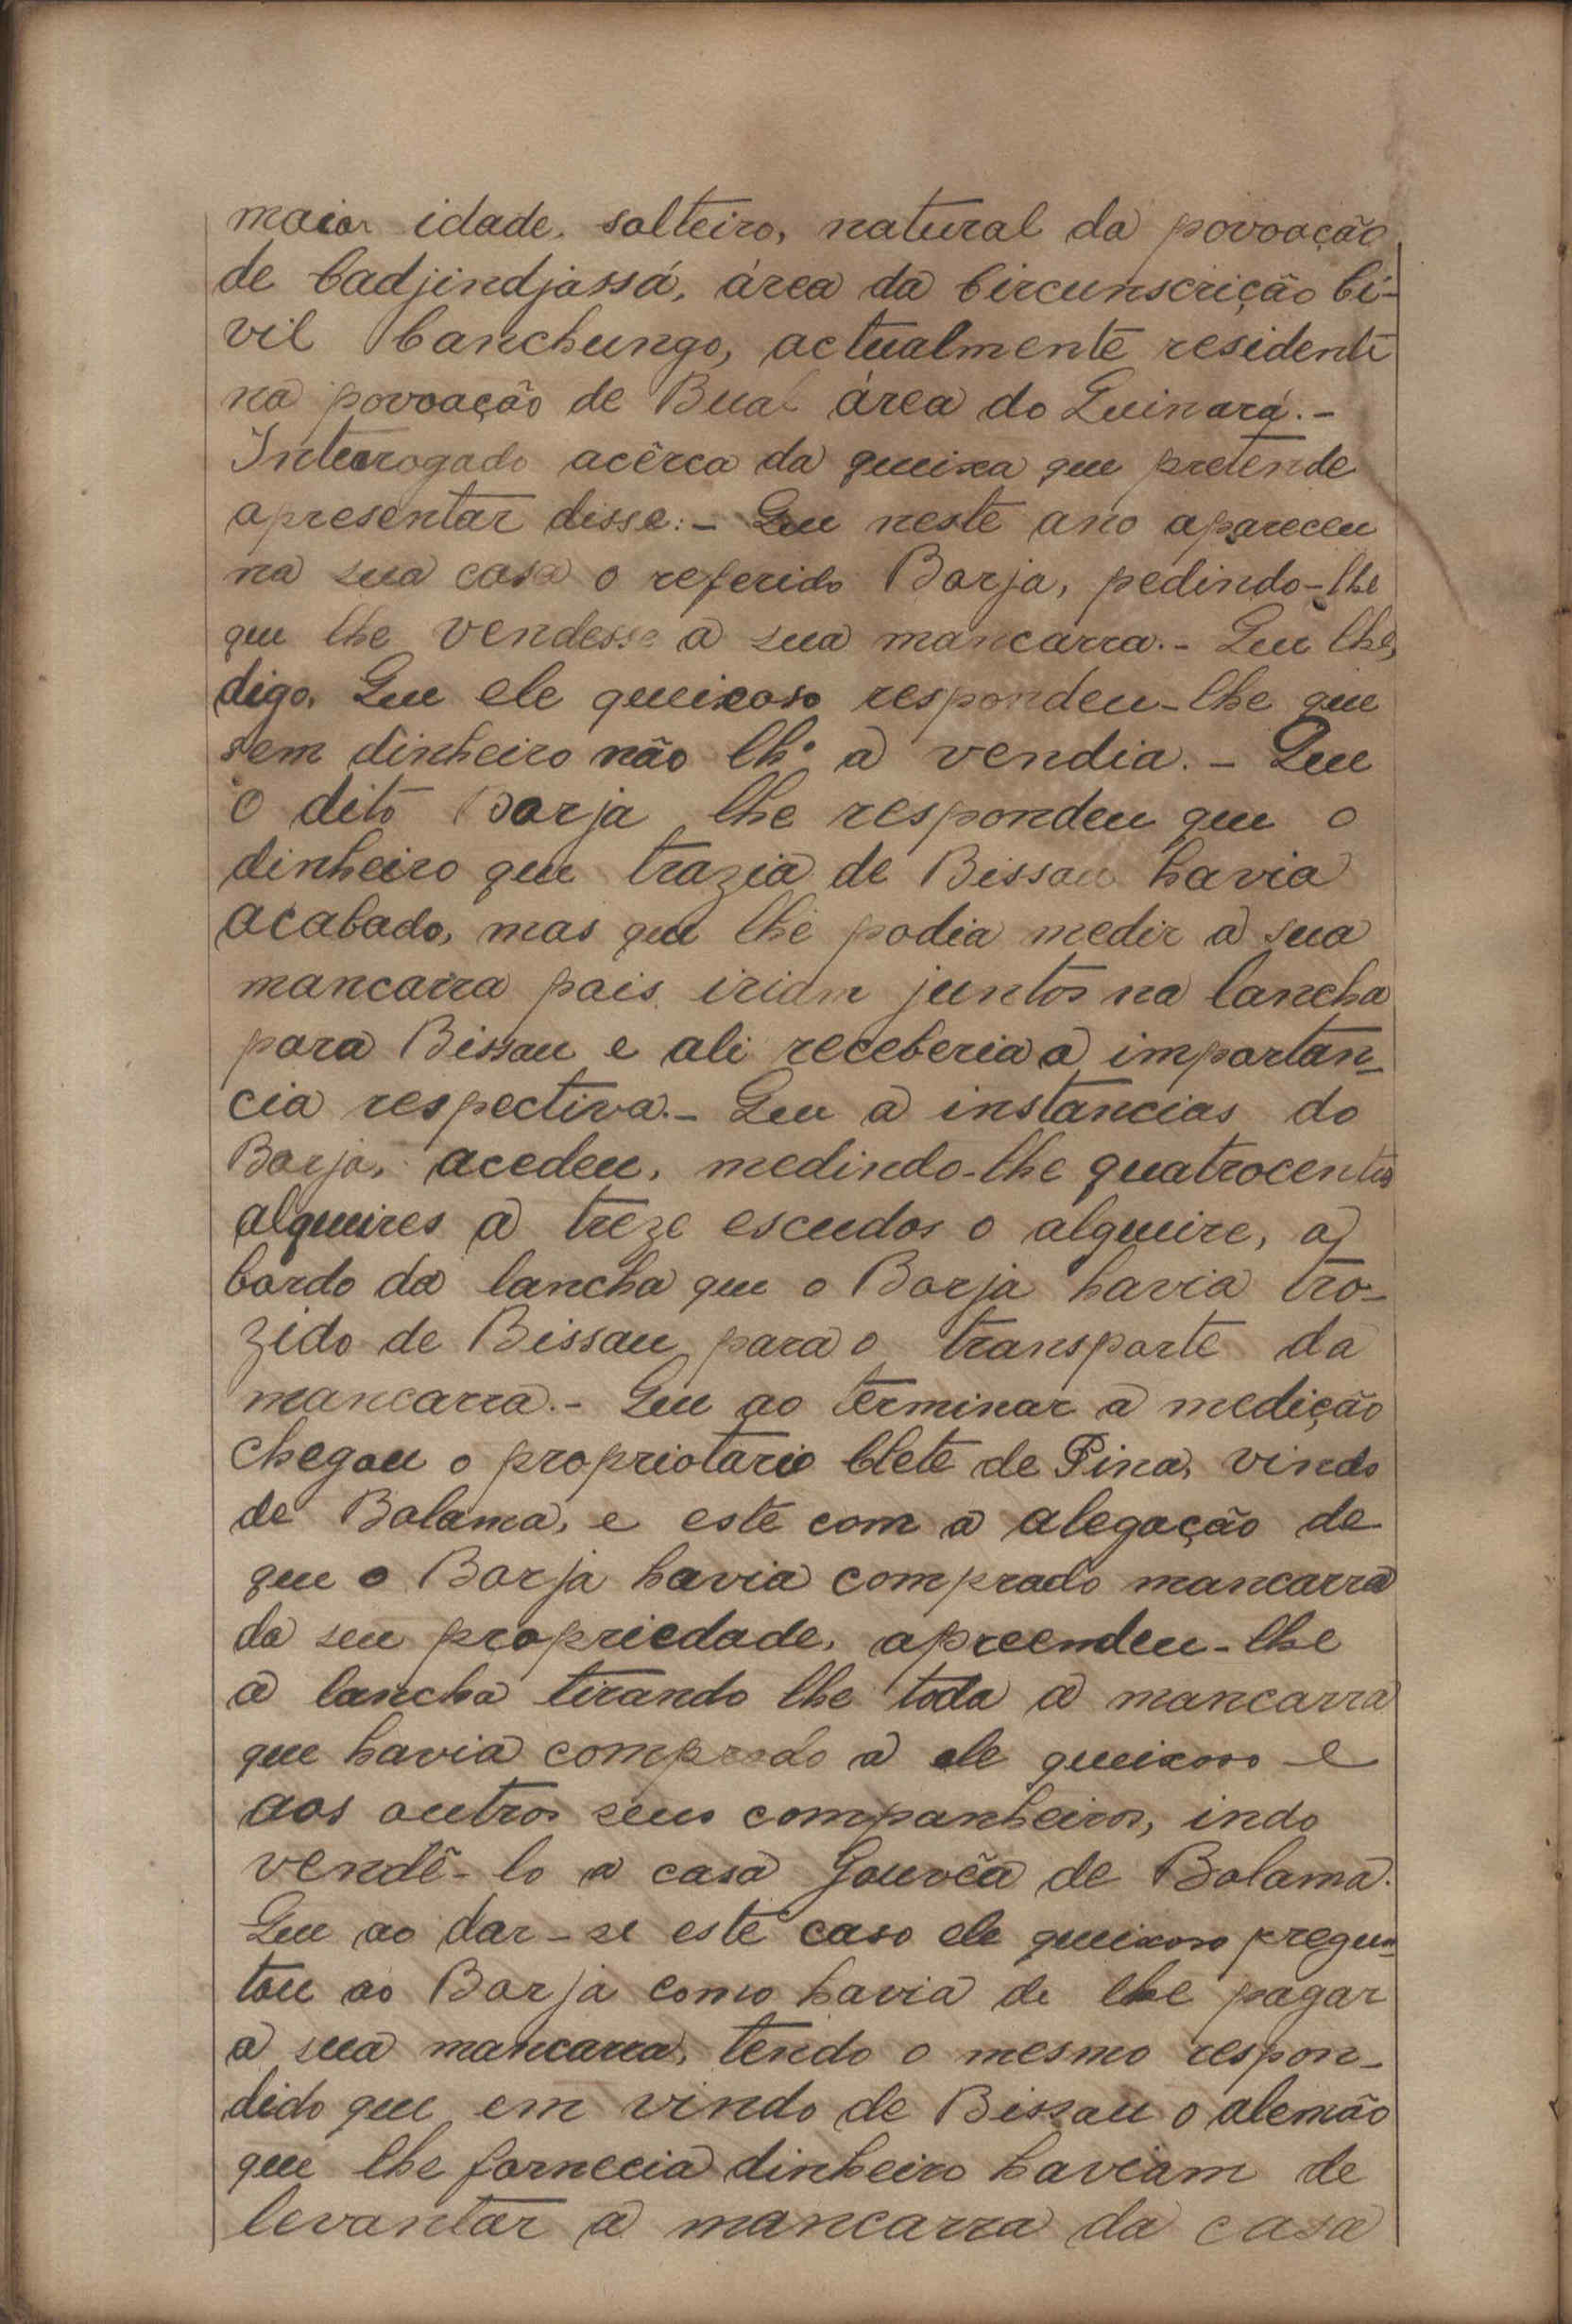 maior idade, solteiro, natural da povoação
de Cadjindjassá, área da Circunscrição Ci-
vil Canchungo, actualmente residente
na povoação de Bual área do Quinará.-
Interrogado acêrca da queixa que pretende
apresentar disse:- Que neste ano apareceu
na sua casa o referido Borja, pedindo-lhe
que lhe vendesse a sua mancarra.- Que lhe,
digo, Que ele queixoso respondeu-lhe que
sem dinheiro não lh'a vendia.- Que
o dito Borja lhe respondeu que o
dinheiro que trazia de Bissau havia
acabado, mas que lhe podia medir a sua
mancarra pois iriam juntos na lancha
para Bissau e ali receberia a importan-
cia respectiva.- Que a instancias do
Borja, acedeu, medindo-lhe quatrocentos
alqueires a treze escudos o alqueire, a
bordo da lancha que o Borja havia tra-
zido de Bissau para o transporte da
mancarra.- Que ao terminar a medição
chegou o propriotário Clete de Pina, vindo
de Bolama, e este com a alegação de
que o Borja havia comprado mancarra
da seu propriedade, apreendeu-lhe
a lancha tirando lhe toda a mancarra
que havia comprado a ele queixoso e
aos outros seus companheiros, indo
vendê-lo a casa Gouvêa de Bolama.
Que ao dar-se este caso ele queixoso pregun-
tou ao Borja como havia de lhe pagar
a sua mancarra, tendo o mesmo respon-
dido que em vindo de Bissau o alemão
que lhe fornecia dinheiro haviam de
levantar a mancarra da casa